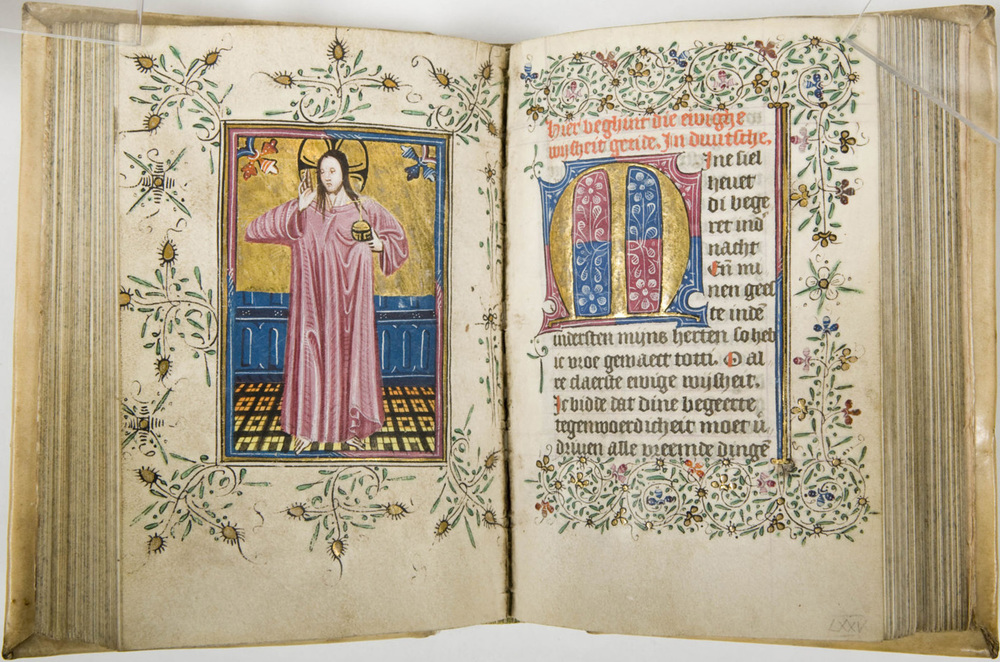 hier beghint die ewighe
wijsheit getide. In duutsche.
MIne siel
heuet
di bege
ret ind
nacht
Eñ mi
nen gees
te indē
innersten mijns herten so heb
ic vroe gemaect totti. O al
re claerste ewige wijsheit.
Ic bidde dat dine begeerte
tegenwoerdicheit moet v̄
driuen alle vreemde dingē
LXXV